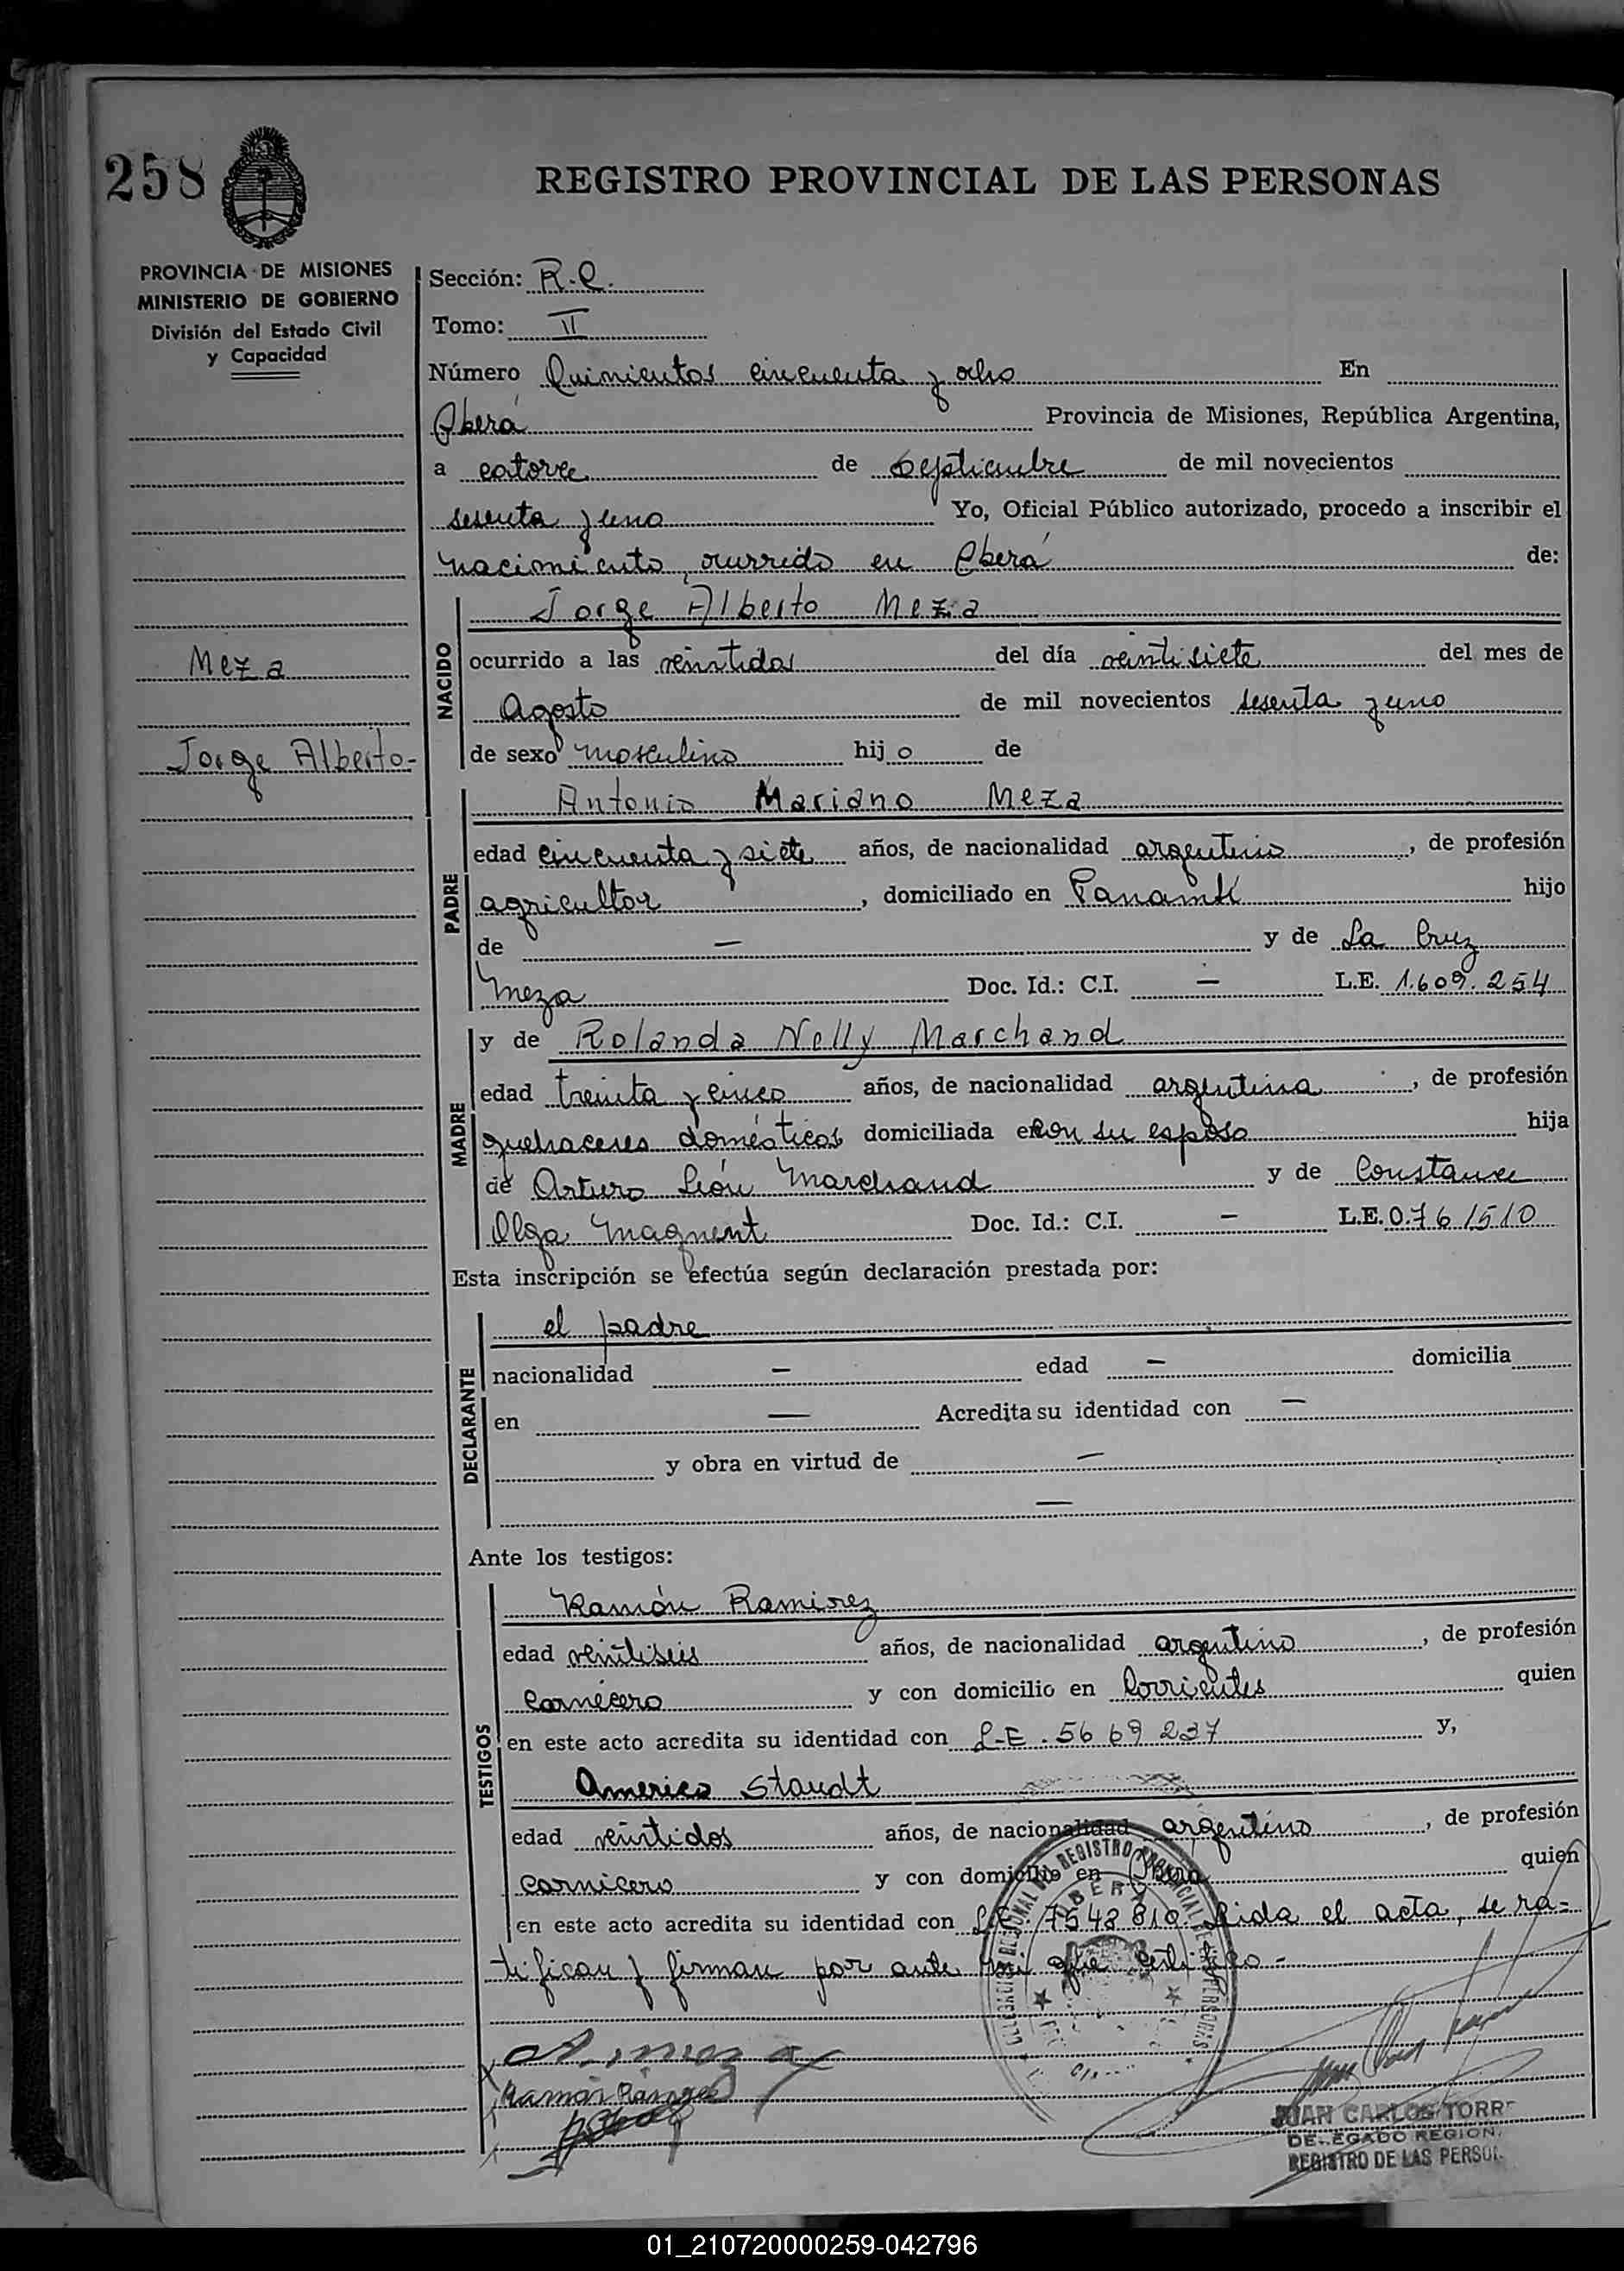 258
REGISTRO PROVINCIAL DE LAS PERSONAS
PROVINCIA DE MISIONES
MINISTERIO DE GOBIERNO
División del Estado Civil
y Capacidad
Sección: R.C.
Tomo: II
Número Quinientos cincuenta y ocho En
Oberá Provincia de Misiones, República Argentina,
a catorce de Septiembre de mil novecientos
sesenta y uno Yo, Oficial Público autorizado, procedo a inscribir el
nacimiento, ocurrido en Oberá de:
Meza
Jorge Alberto-
NACIDO
Jorge Alberto Meza
ocurrido a las veintidos del día veintisiete del mes de
Agosto de mil novecientos sesenta y uno
de sexo masculino hijo de
PADRE
Antonio Mariano Meza
edad cincuenta y siete años, de nacionalidad argentino, de profesión
agricultor, domiciliado en Panambí hijo
de — y de La Cruz
Meza Doc. Id.: C.I. — L.E. 1.609.254
MADRE
y de Rolanda Nelly Marchand
edad treinta y cinco años, de nacionalidad argentina, de profesión
quehaceres domésticos domiciliada en con su esposo hija
de Arturo León Marchand y de Constance
Olga Magnent Doc. Id.: C.I. — L.E. 0.761510
Esta inscripción se efectúa según declaración prestada por:
DECLARANTE
el padre
nacionalidad — edad — domicilia
en — Acredita su identidad con —
y obra en virtud de —
—
Ante los testigos:
TESTIGOS
Ramón Ramirez
edad veintiseis años, de nacionalidad argentino, de profesión
carnicero y con domicilio en Corrientes quien
en este acto acredita su identidad con L.E. 5669237 y,
Americo Staudt
edad veintidos años, de nacionalidad argentino, de profesión
carnicero y con domicilio en Oberá quien
en este acto acredita su identidad con L.E. 7543810. Leida el acta, se ra=
tifican y firman por ante mi que certifico-
A. Meza
Ramón Ramirez
JUAN CARLOS TORRE
DELEGADO REGION.
REGISTRO DE LAS PERSO
01_210720000259-042796